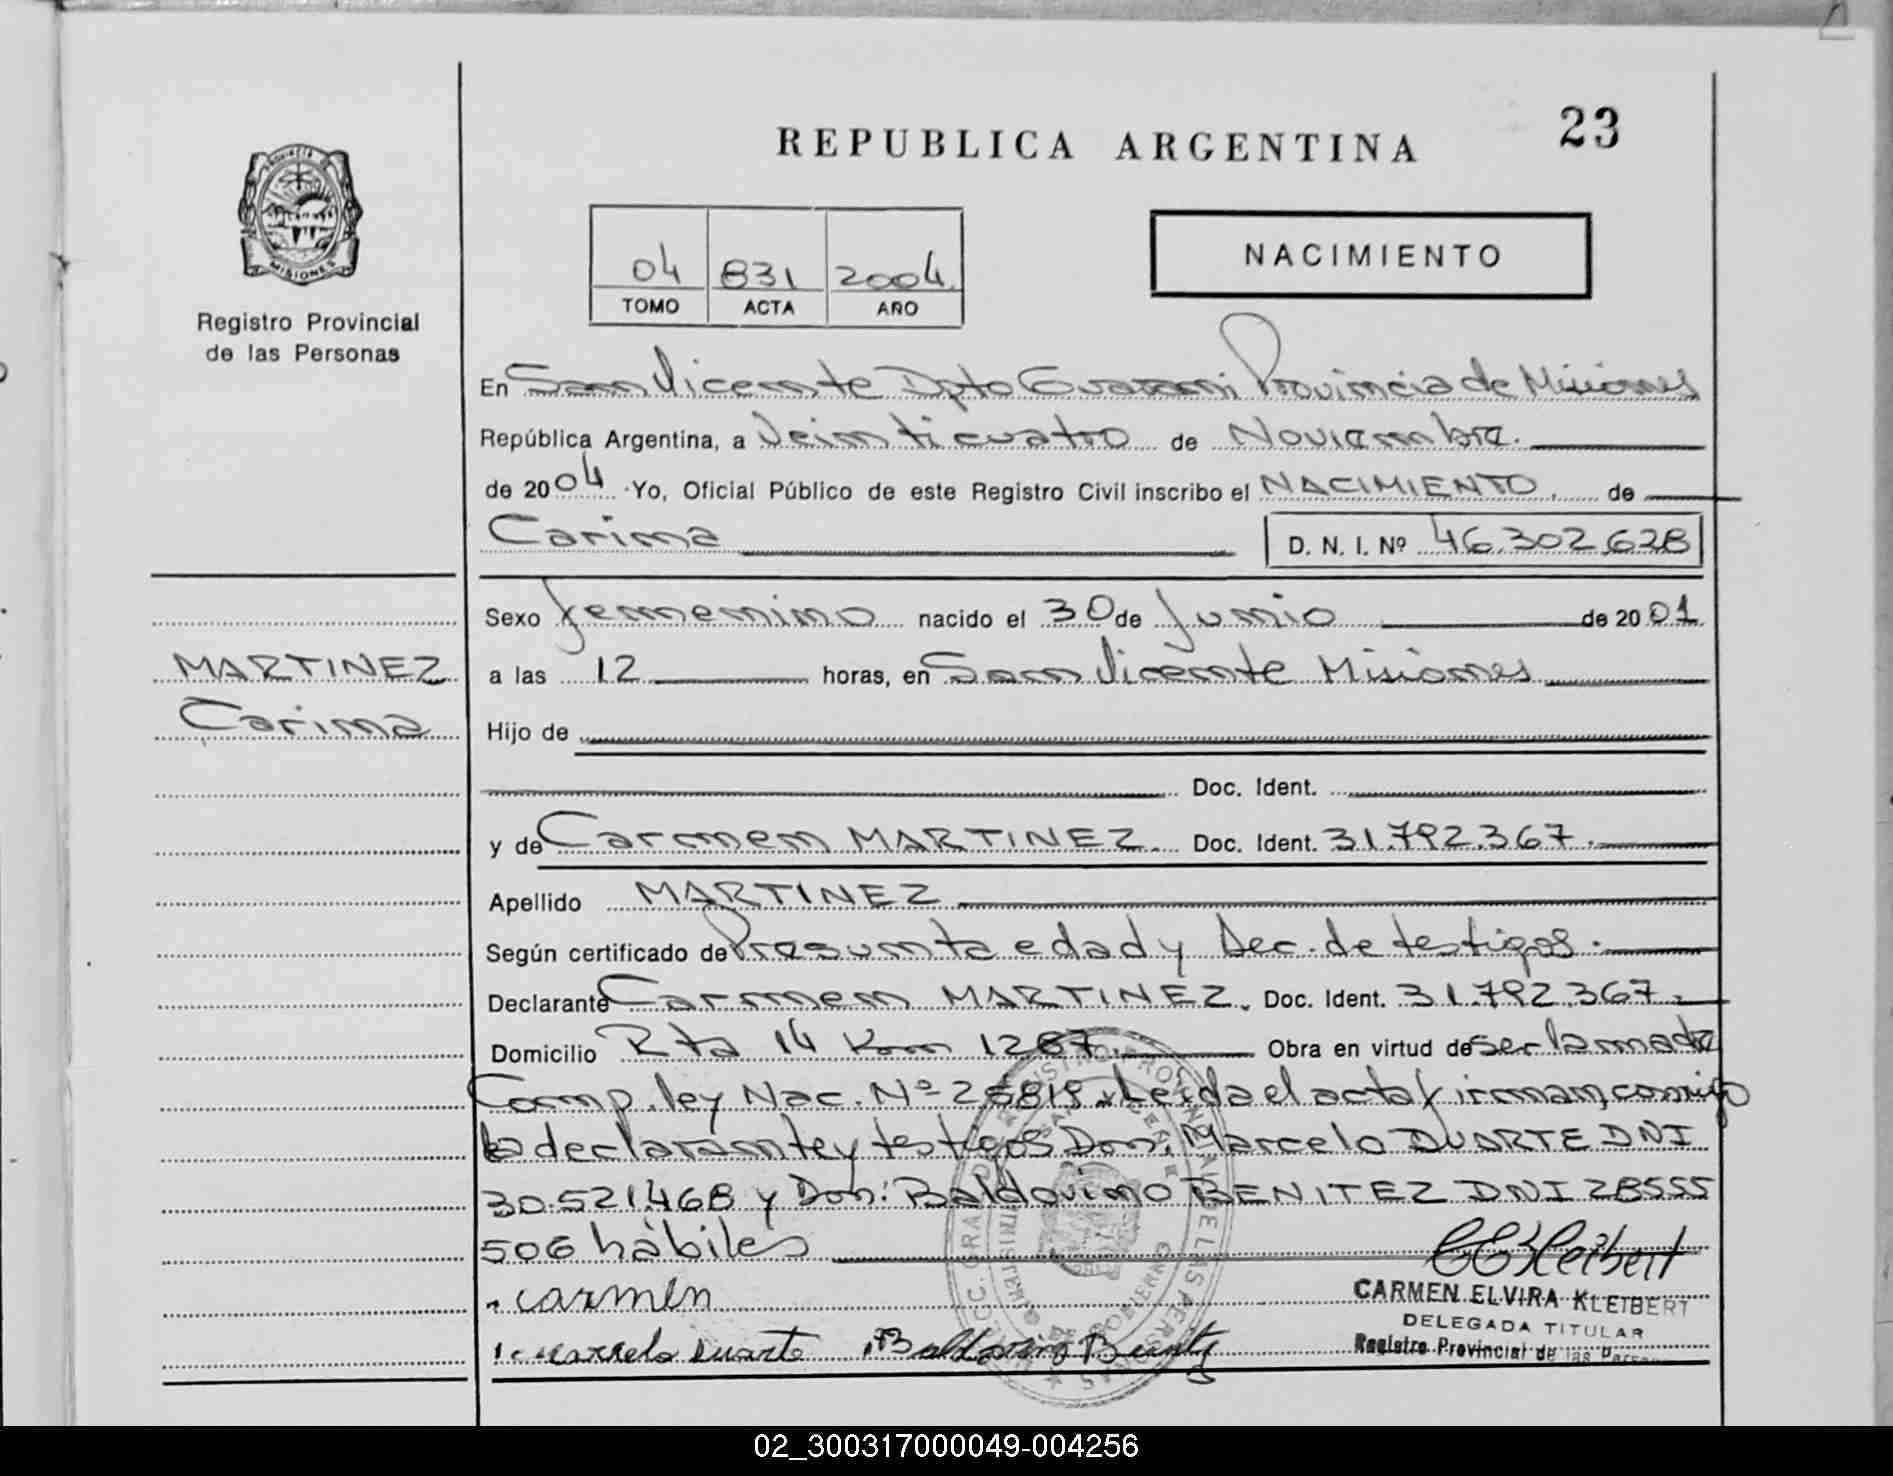 23
REPUBLICA ARGENTINA
PROVINCIA DE
MISIONES
Registro Provincial
de las Personas
04 831 2004
TOMO ACTA AÑO
NACIMIENTO
En San Vicente Dpto Guarani Provincia de Misiones
República Argentina, a Veinticuatro de Noviembre.
de 2004 Yo, Oficial Público de este Registro Civil inscribo el NACIMIENTO de
Carina D. N. I. Nº 46.302.628
Sexo femenino nacido el 30 de Junio de 2001
MARTINEZ
Carina
a las 12 horas, en San Vicente Misiones
Hijo de
Doc. Ident.
y de Carmen MARTINEZ. Doc. Ident. 31.792.367.
Apellido MARTINEZ
Según certificado de Presunta edad y Dec. de testigos.
Declarante Carmen MARTINEZ. Doc. Ident. 31.792.367.
Domicilio Rta 14 Km 1267. Obra en virtud de ser la madre
Comp. ley Nac. Nº 25819. Leida el acta firman, conmigo
la declarante y testigos Don: Marcelo DUARTE DNI
30.521.468 y Don: Baldovino BENITEZ DNI 28555
506 hábiles
carmen
Marcelo Duarte Baldovino Benitez
CEKleibert
CARMEN ELVIRA KLEIBERT
DELEGADA TITULAR
Registro Provincial de las Personas
02_300317000049-004256